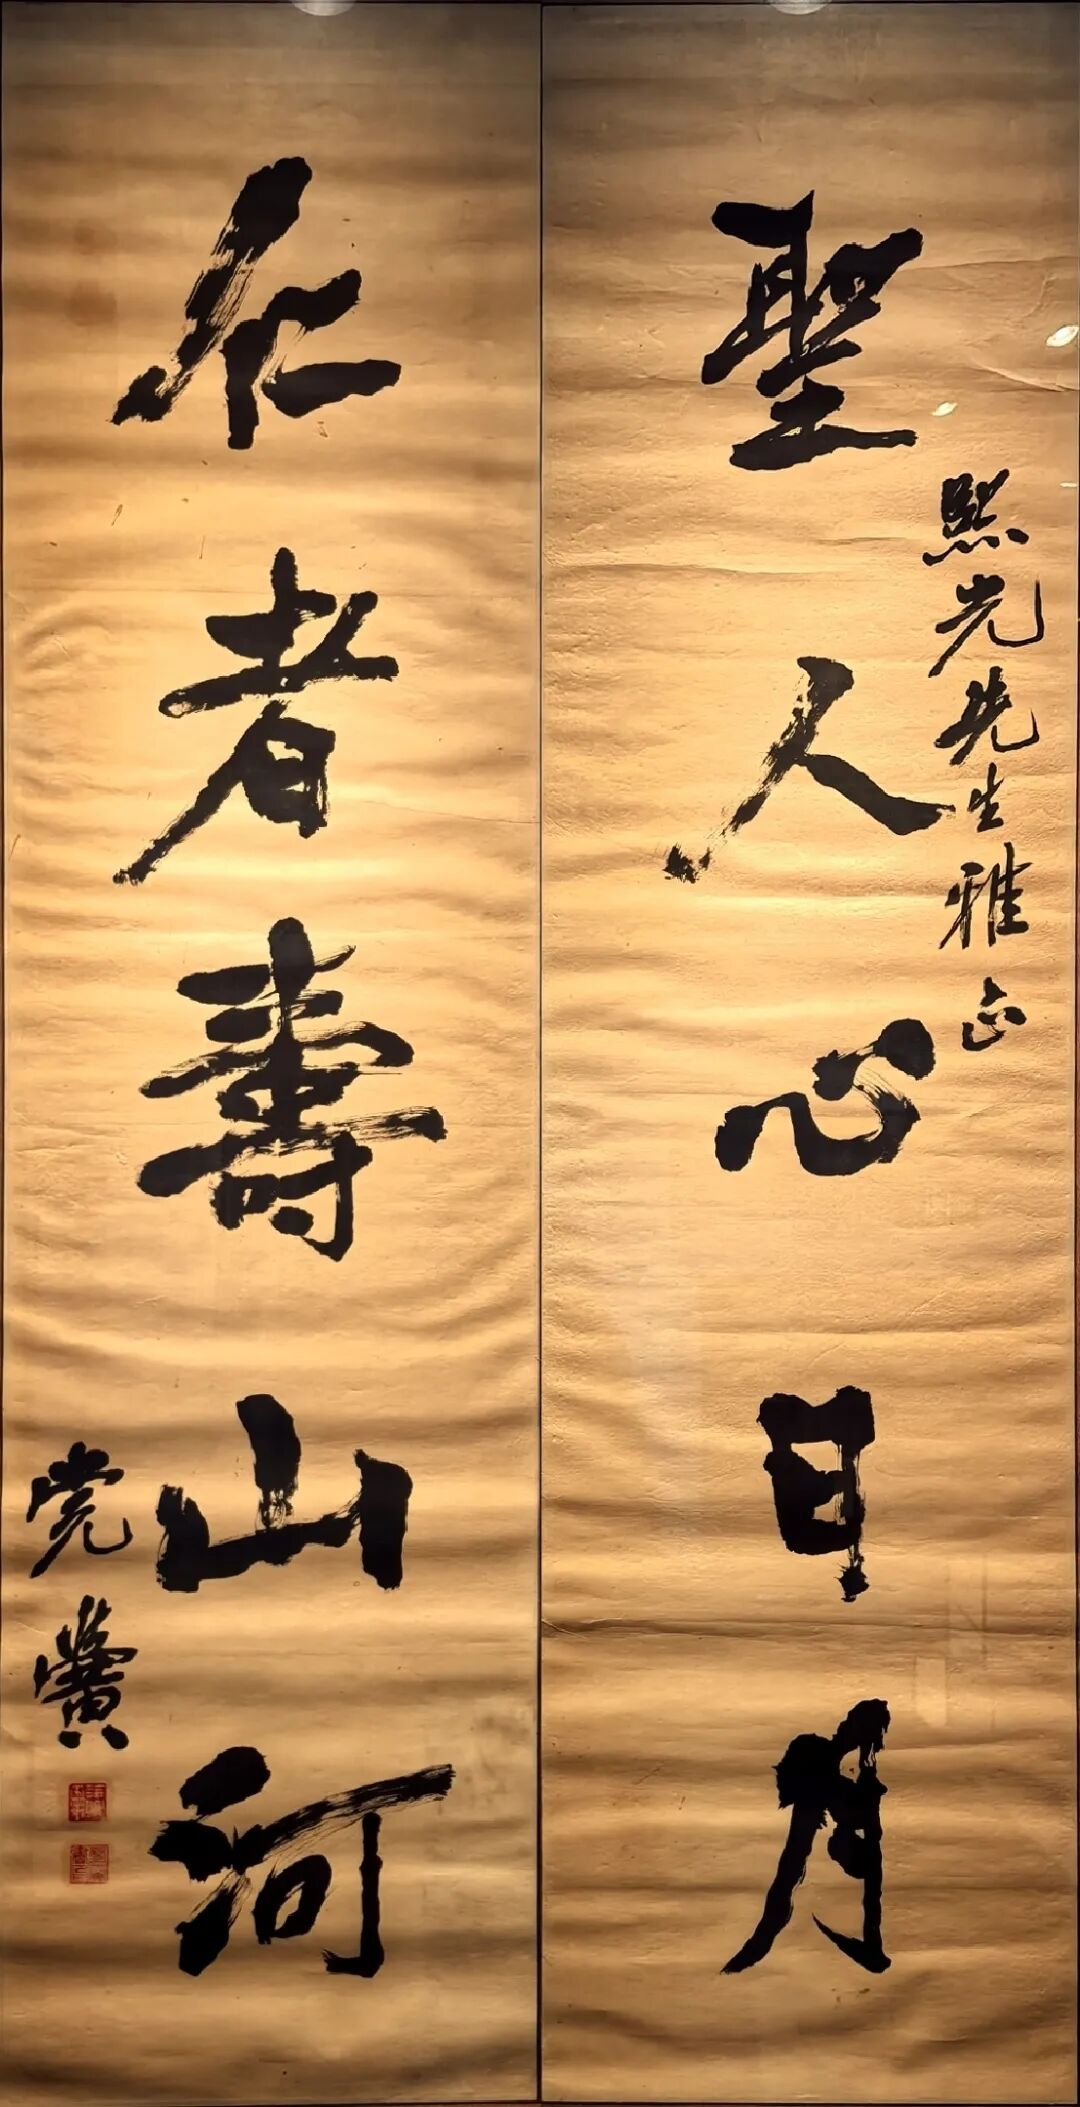 聖人心日月
熙光先生雅正
仁者壽山河
党黌